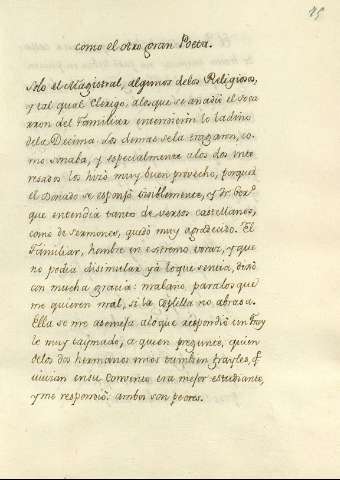 25
como el otro gran Poeta.
Solo el Magistral, algunos delos Religiosos,
y tal qual Clerigo, alos que se anadió el soca
rron del Familiar entendieron lo ladino
dela Decima. Los demas sela tragaron, co-
mo sonaba, y especialmente alos dos inte
resados los hizo muy buen provecho, porque
el Donado se esponjó visiblemente, y dn. Bar.e
que entendia tanto de versos castellanos,
como de sermones, quedó muy agradecido. El
Familiar, hombre en extremo voraz, y que
no podia disimular ya loque sentia, dixo
con mucha gracia: malaño para los que
me quieren mal, si la coplilla no abrasa.
Ella se me asemeja aloque respondió un fray
le muy taymado, a quien pregunté, quien
delos dos hermanos mios tambien frayles, q.e
vivian en su Convento era mejor estudiante,
y me respondió: ambos son peores.